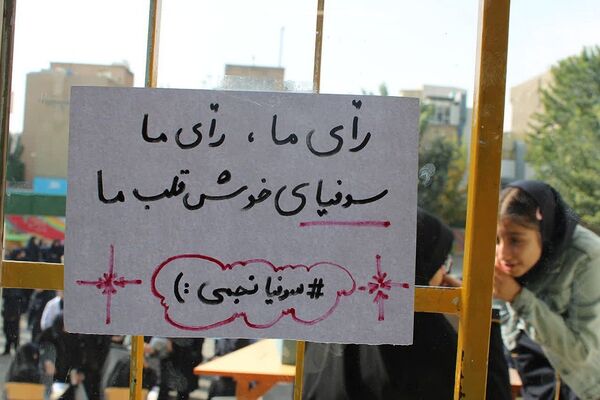 رأی ما ، رأی ما
سوفیای خوش قلب ما
#سوفیا نجمی :)